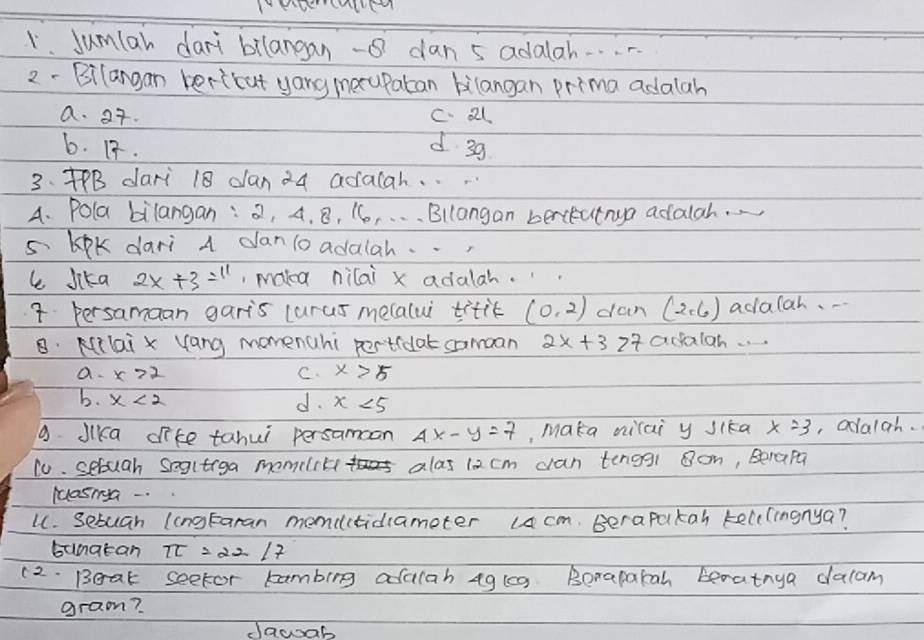 Matematika
1. Jumlah dari bilangan -8 dan 5 adalah.....
2. Bilangan berikut yang merupakan bilangan prima adalah
a. 27. c. 21
b. 17. d. 39
3. FPB dari 18 dan 24 adalah....
4. Pola bilangan : 2, 4, 8, 16, ... Bilangan berikutnya adalah...
5. KPK dari 4 dan 10 adalah...
6. Jika 2x + 3 = 11, maka nilai x adalah...
7. Persamaan garis lurus melalui titik (0,2) dan (2,6) adalah...
8. Nilai x yang memenuhi pertidaksamaan 2x + 3 > 7 adalah...
a. x > 2 c. x > 5
b. x < 2 d. x < 5
9. Jika dike tahui persamaan 4x - y = 7, maka nilai y jika x = 3, adalah..
10. sebuah segitiga memiliki alas 12 cm dan tinggi 8 cm, Berapa
luasnya ...
11. Sebuah lingkaran memiliki diameter 14 cm. Berapakah kelilingnya?
Gunakan π = 22/7
12. Berat seekor kambing adalah 49 kg. Berapakah beratnya dalam
gram?
Jawab